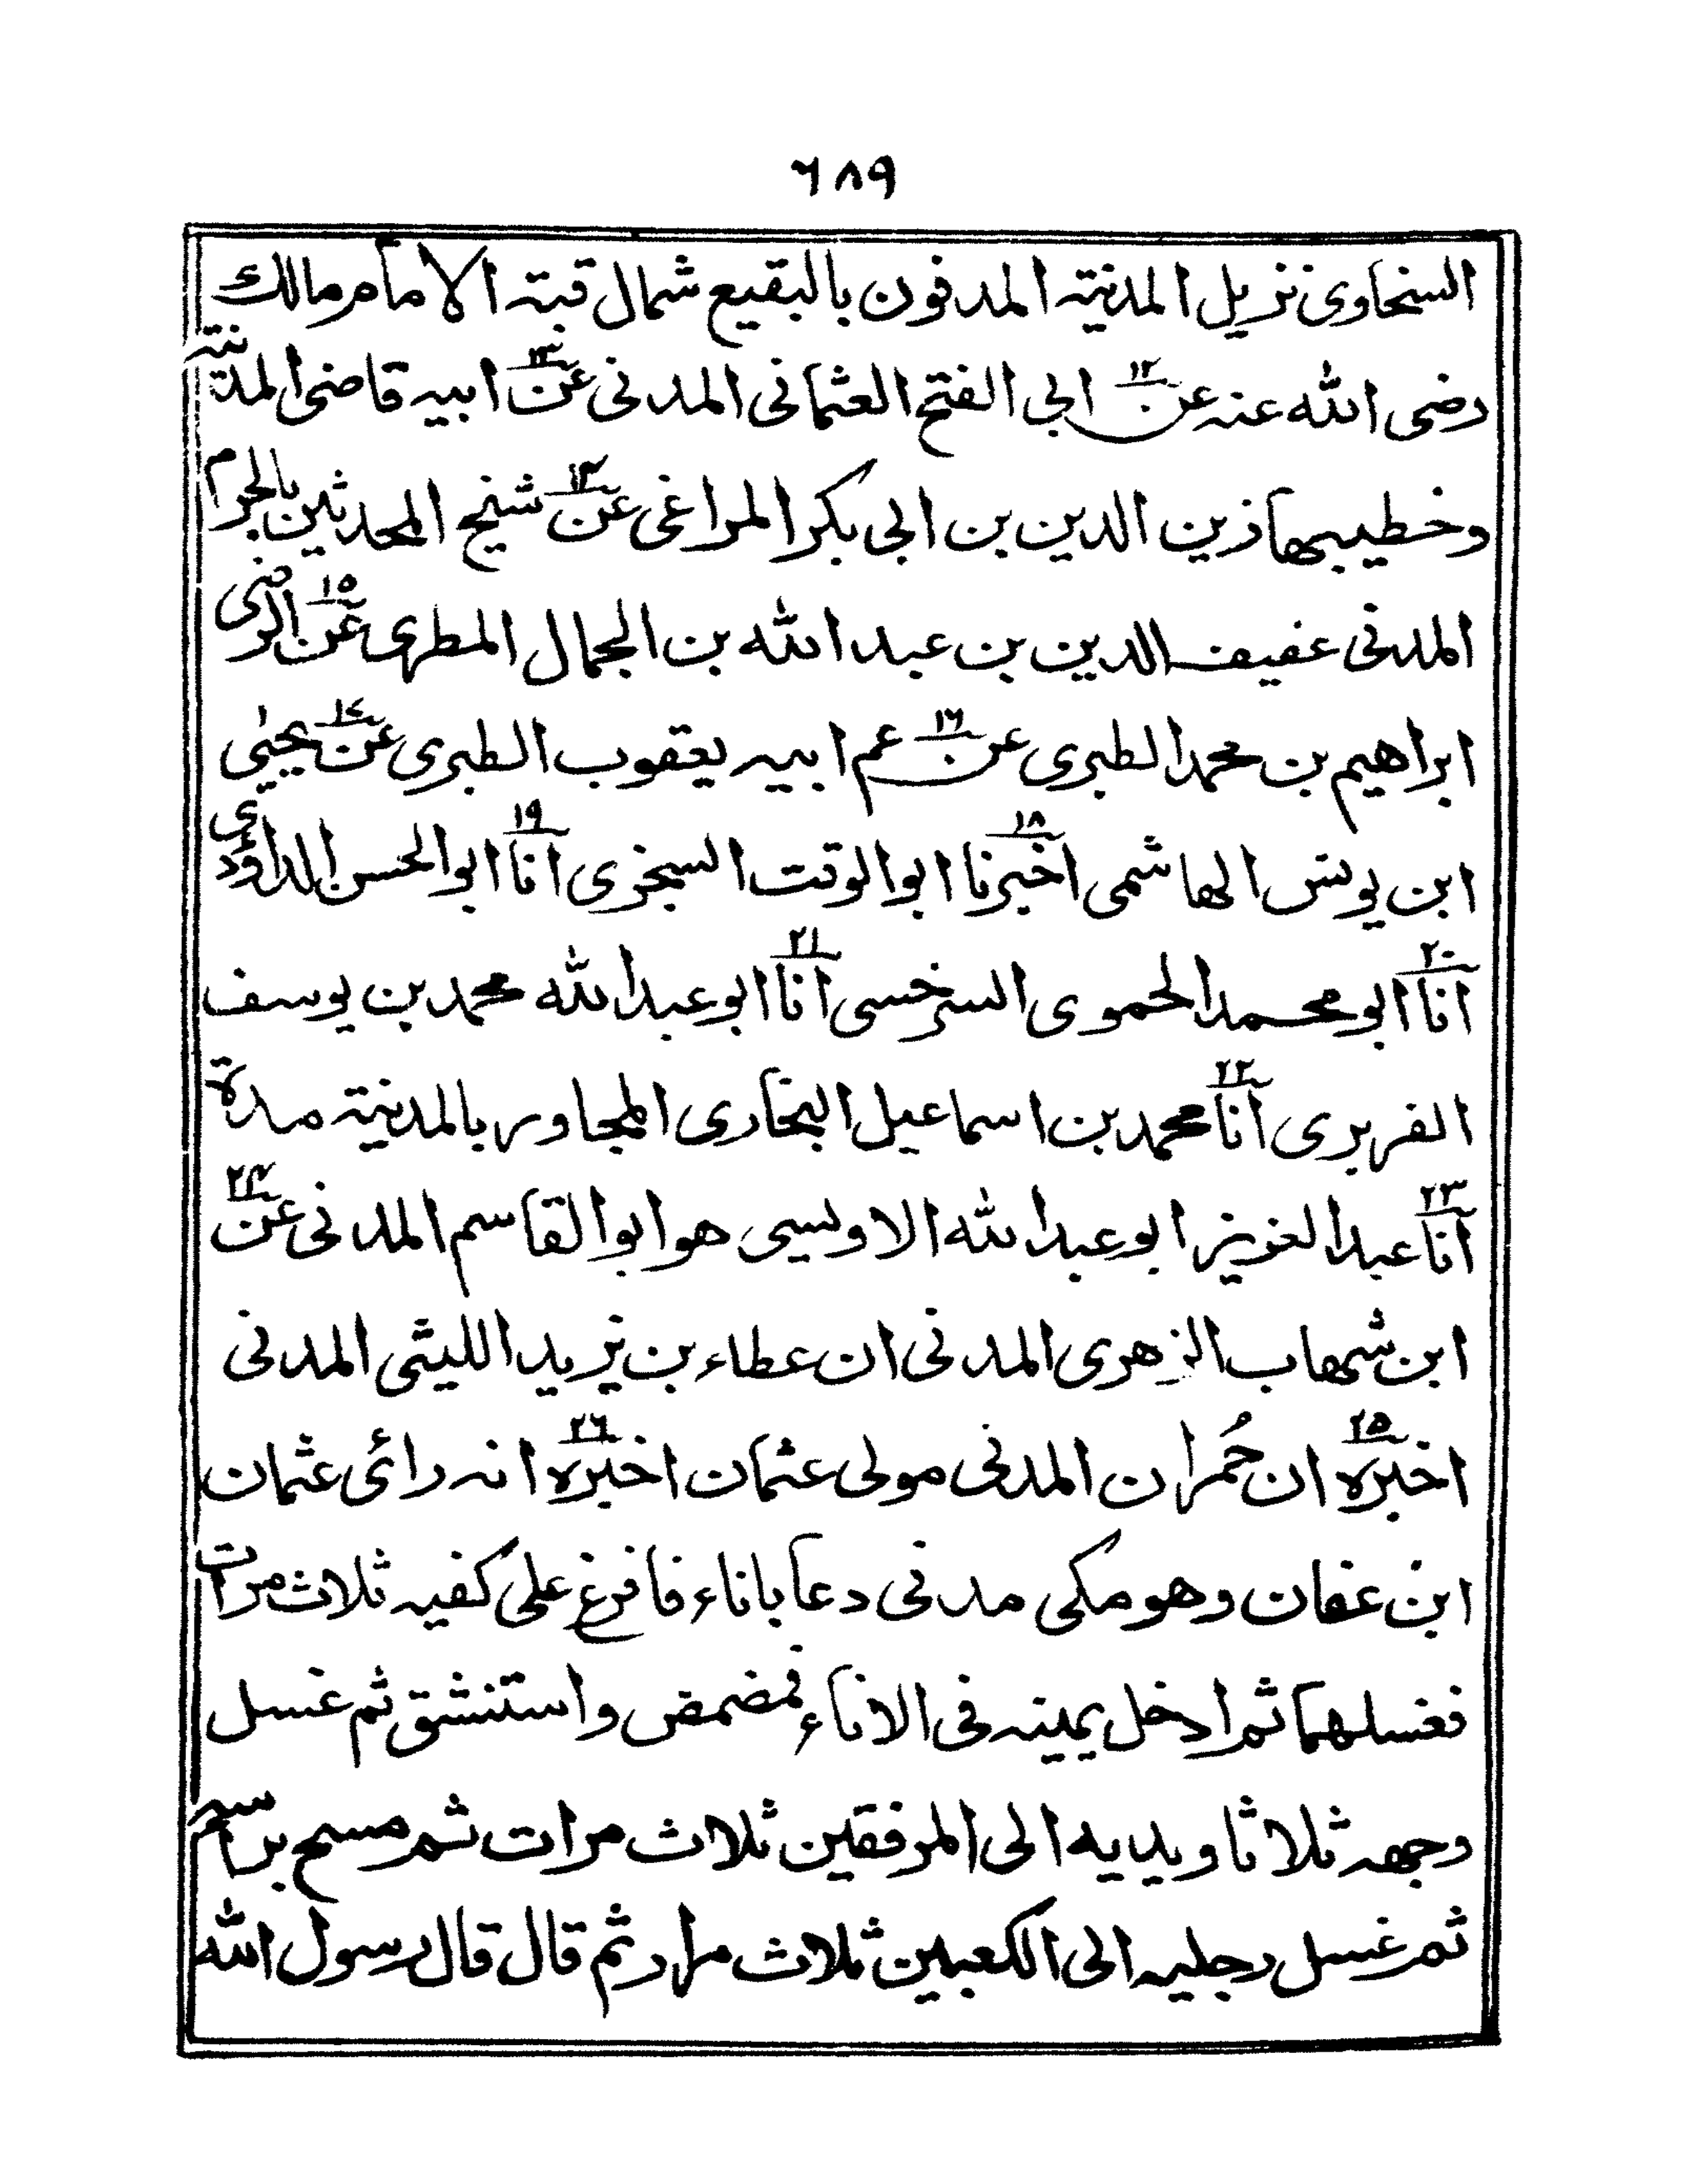 ٦٨٩
السخاوى نزيل المدنية المدفون بالبقيع شمال قبة الامام مالك
رضى الله عنه عن ١٢ ابى الفتح العثمانى المدنى عن ١٣ ابيه قاضى المدنية
وخطيبها زين الدين بن ابى بكر المراغى عن ١٤ شيخ المحدثين بالحرم
المدنى عفيف الدين بن عبد الله بن الجمال المطرى عن ١٥ الرضى
ابراهيم بن محمد الطبرى عن ١٦ عم ابيه يعقوب الطبرى عن ١٧ يحيىٰ
ابن يونس الهاشمى اخبرنا ١٨ ابو الوقت السجزى انا ١٩ ابو الحسن الداؤدى
انا ٢٠ ابو محمد الحموى السرخسى انا ٢١ ابو عبد الله محمد بن يوسف
الفربرى انا ٢٢ محمد بن اسماعيل البخارى المجاور بالمدنية مدة
انا ٢٣ عبد العزيز ابو عبد الله الاويسى هو ابو القاسم المدنى عن ٢٤
ابن شهاب الزهرى المدنى ان عطاء بن يزيد الليثى المدنى
اخبره ٢٥ ان حُمران المدنى مولى عثمان اخبره ٢٦ انه رائ عثمان
ابن عفان وهو مكى مدنى دعا باناء فافرغ على كفيه ثلاث مرات
فغسلهما ثم ادخل يمينه فى الاناء فمضمض واستنشق ثم غسل
وجهه ثلاثا ويديه الى المرفقين ثلاث مرات ثم مسح براسه
ثم غسل رجليه الى الكعبين ثلاث مرار ثم قال قال رسول الله